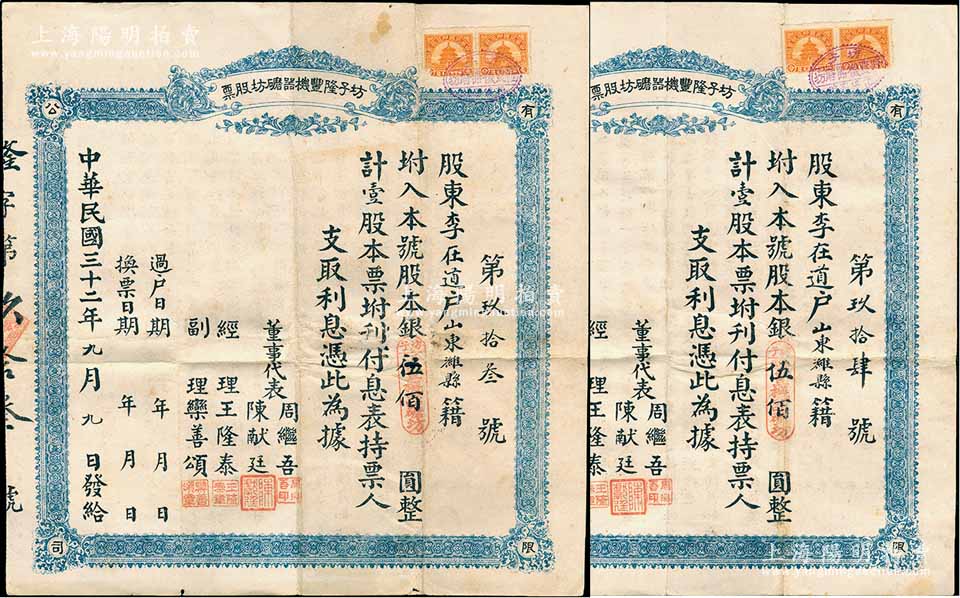 上海陽明拍賣
www.yangmingauction.com
坊子隆豐機器礦坊股票
有
限
公
司
第玖拾叁號
股東李在道戶山東濰縣籍
坿入本號股本銀伍佰圓整
計壹股本票坿刊付息表持票人
支取利息憑此為據
董事代表周繼吾
陳献廷
經理王隆泰
副理欒善頌
過戶日期 年 月 日
換票日期 年 月 日
中華民國三十二年九月九日發給
隆字第玖拾叁號
坊子隆豐機器礦坊股票
有
限
第玖拾肆號
股東李在道戶山東濰縣籍
坿入本號股本銀伍佰圓整
計壹股本票坿刊付息表持票人
支取利息憑此為據
董事代表周繼吾
陳献廷
經理王隆泰
上海陽明拍賣
www.yangmingauction.com
上海陽明拍賣
www.yangmingauction.com